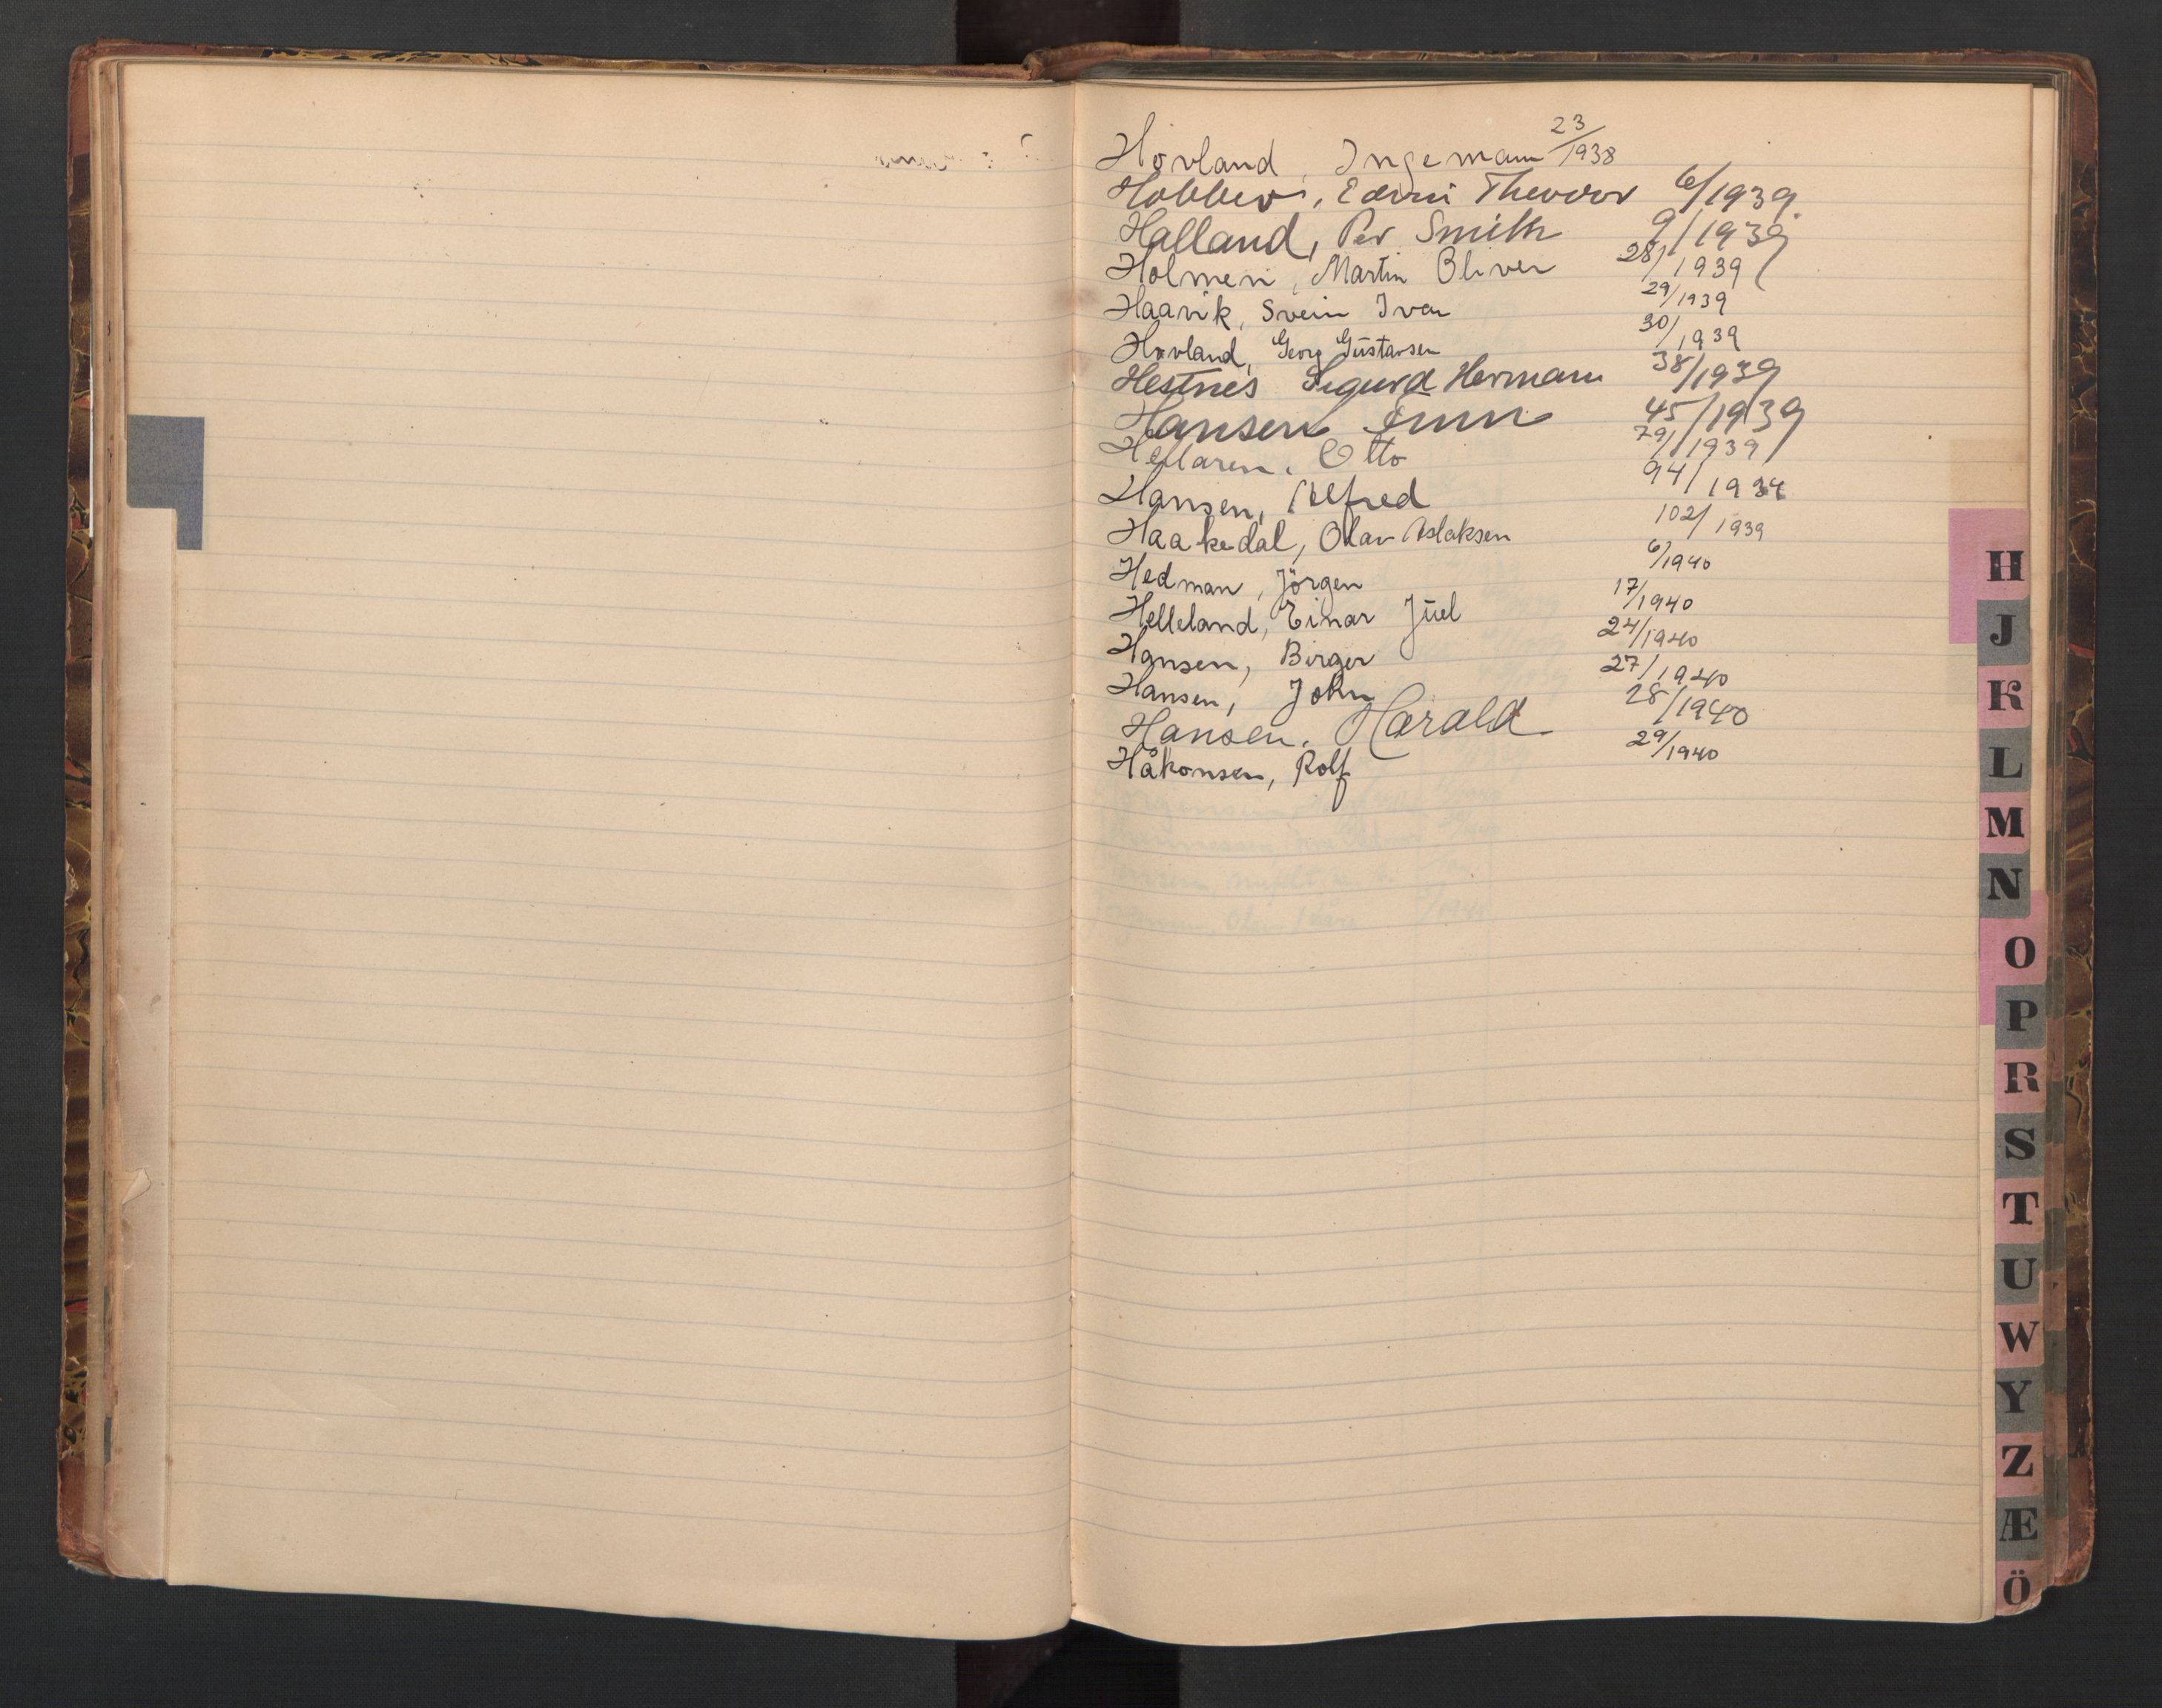 Hovland, Ingemann 23/1938
Hobber, Edvin Theodor 6/1939.
Halland, Per Smith 9/1939
Holmen, Martin Oliver 28/1939
Haavik, Svein Ivar 29/1939
Hovland, Georg Gustavsen 30/1939
Hestnes Sigurd Hermann 38/1939
Hansen Finn 45/1939
Otto 79/1939
Hansen, Alfred 94/1939
Haakedal, Olav Aslaksen 102/1939
Hedman, Jörgen 6/1940
Helleland, Einar Juel 17/1940
Hansen, Birger 24/1940
Hansen, John 27/1940
Hansen, Harald 28/1940
Håkonsen, Rolf 29/1940
H
J
K
L
M
N
O
P
R
S
T
U
W
Y
Z
Æ
Ö